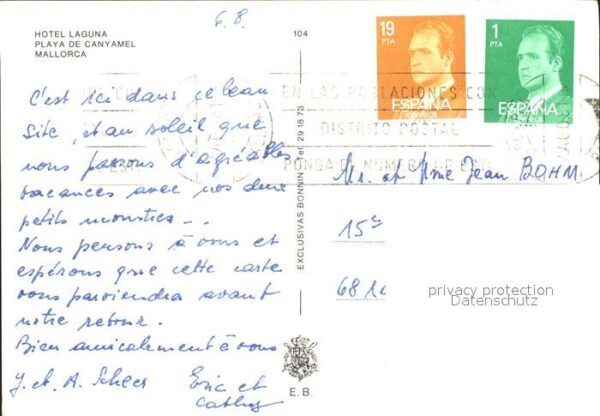 6.8.
HOTEL LAGUNA
PLAYA DE CANYAMEL
MALLORCA
104
C'est ici dans ce beau
site, et au soleil, que
nous passons d'agréables
vacances avec nos deux
petits moustics...
Nous pensons à vous et
espérons que cette carte
vous parviendra avant
notre retour.
Bien amicalement à vous
J. et A. Scheer
Eric et
Cathy
EXCLUSIVAS BONNIN
29 18 73
E. B.
19
PTA
ESPAÑA
CORREOS
1
PTA
ESPAÑA
CORREOS
EN LAS POBLACIONES CON
DISTRITO POSTAL
PONGA EL NUMERO DE
Mr. et Mme Jean BOHM
15
68
privacy protection
Datenschutz